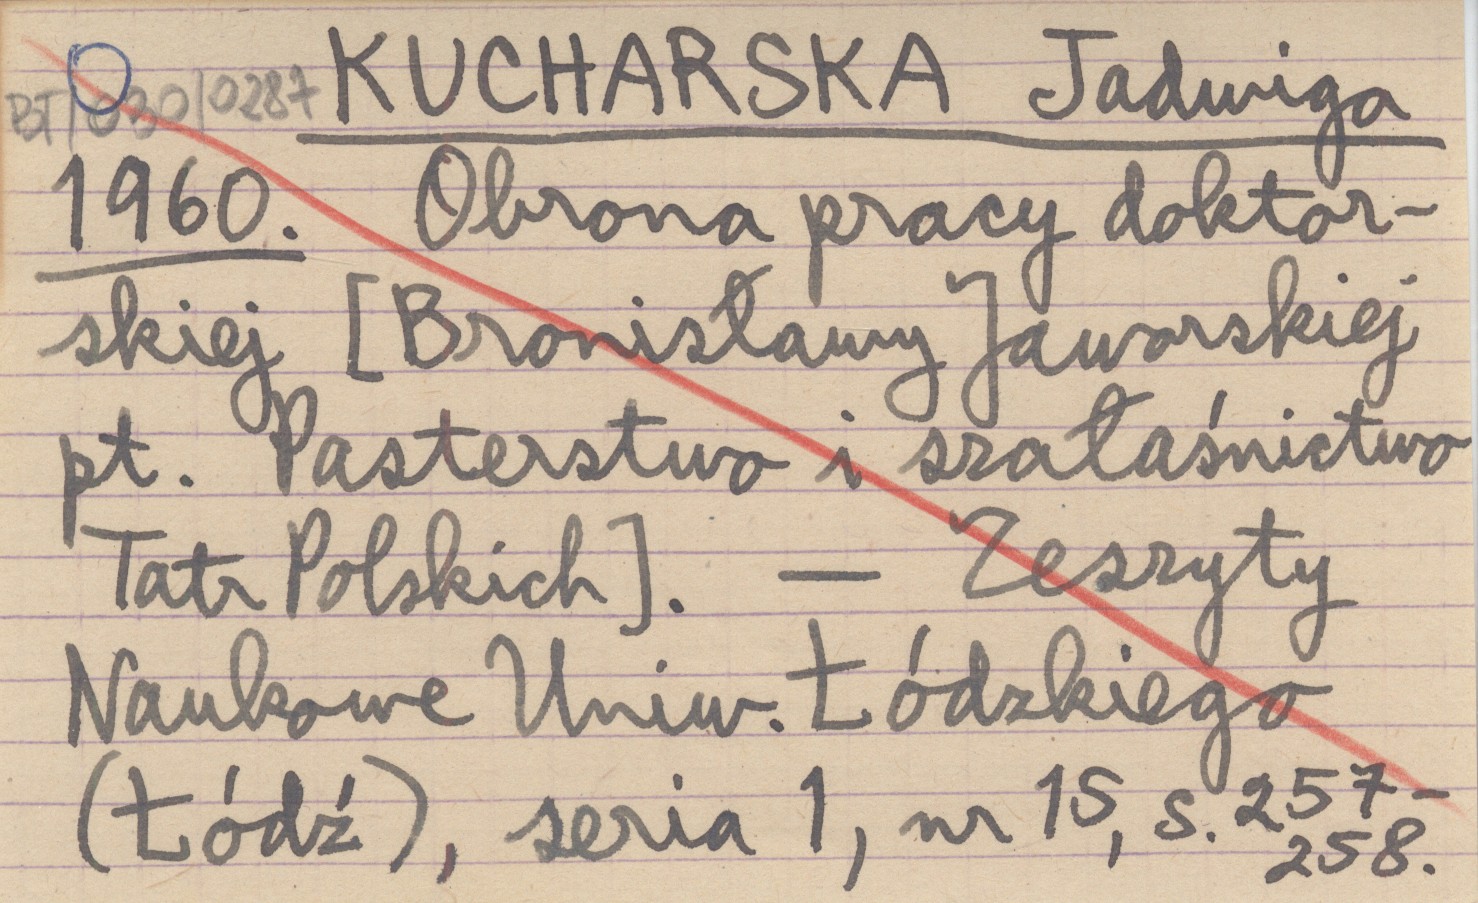 O KUCHARSKA Jadwiga
BT/030/0287
1960. Obrona pracy doktor-
skiej [Bronisławy Jaworskiej
pt. Pasterstwo i szałaśnictwo
Tatr Polskich]. — Zeszyty
Naukowe Uniw. Łódzkiego
(Łódź), seria 1, nr 15, s. 257-
258.